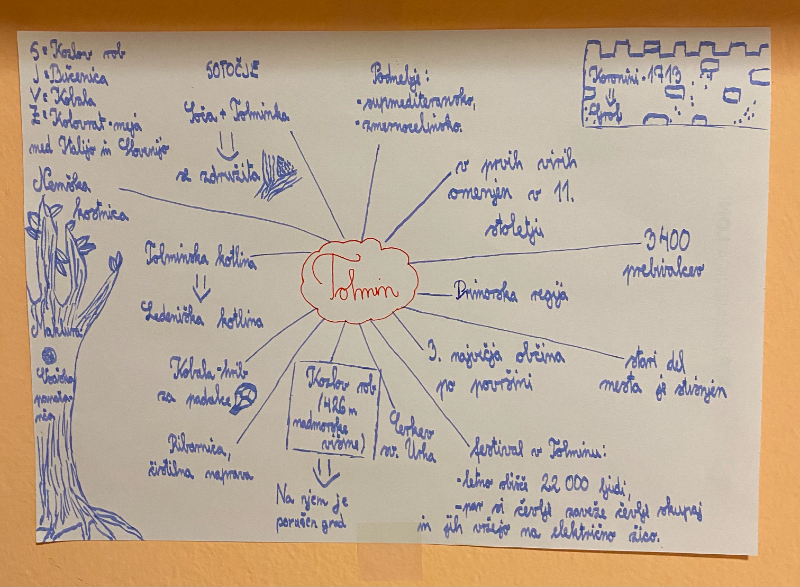 S: Kozlov rob
J: Bučenica
V: Kobala
Z: Kolovrat-meja
med Italijo in Slovenijo
SOTOČJE
Soča + Tolminka
se združita
Podnebje:
-supmediteransko,
-zmernocelinsko.
Koronini-1713
Grof
Nemška
kostnica
v prvih virih
omenjen v 11.
stoletju
3400
prebivalcev
Tolminska kotlina
Ledeniška kotlina
Tolmin
Primorska regija
Kobala-hrib
za padalce
Kozlov rob
(426 m
nadmorske
višine)
Na njem je
porušen grad
Cerkev
sv. Urha
3. največja občina
po površini
stari del
mesta je stisnjen
Ribarnica,
čistilna naprava
festival v Tolminu:
-letno obišče 22 000 ljudi,
-par si čevlje zaveže čevlje skupaj
in jih vržejo na električno žico.